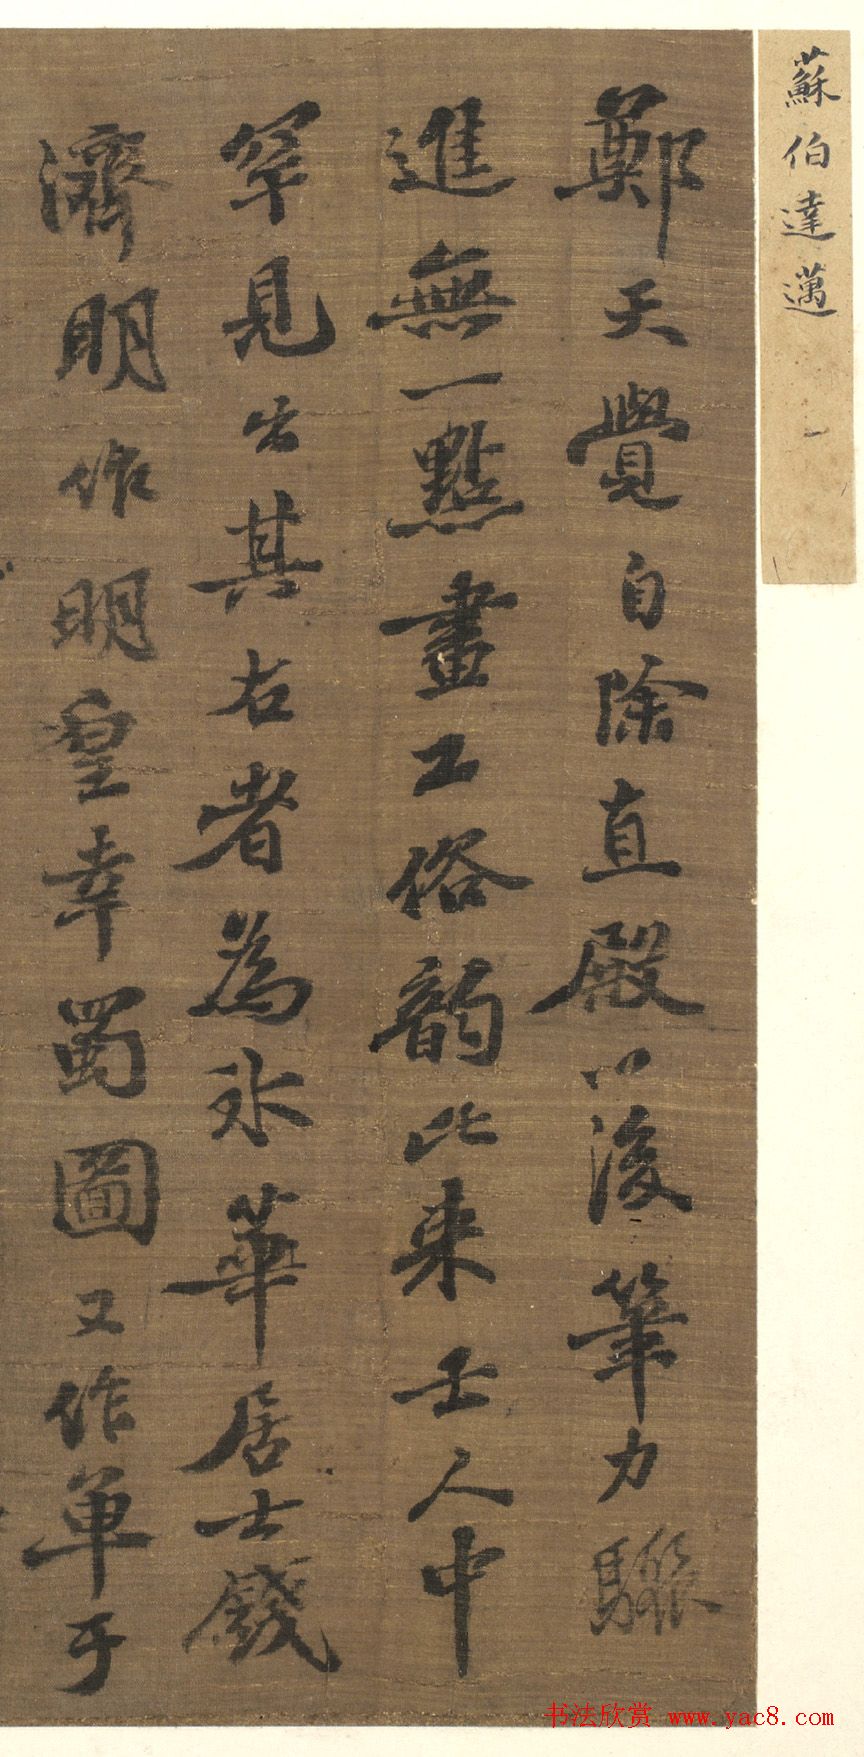 蘇伯達邁
一
鄭天覺自除直殿以後筆力驟
進無一點畫工俗韻比來士人中
罕見出其右者為永華居士錢
濟明作明皇幸蜀圖又作單于
书法欣赏 www.yac8.com